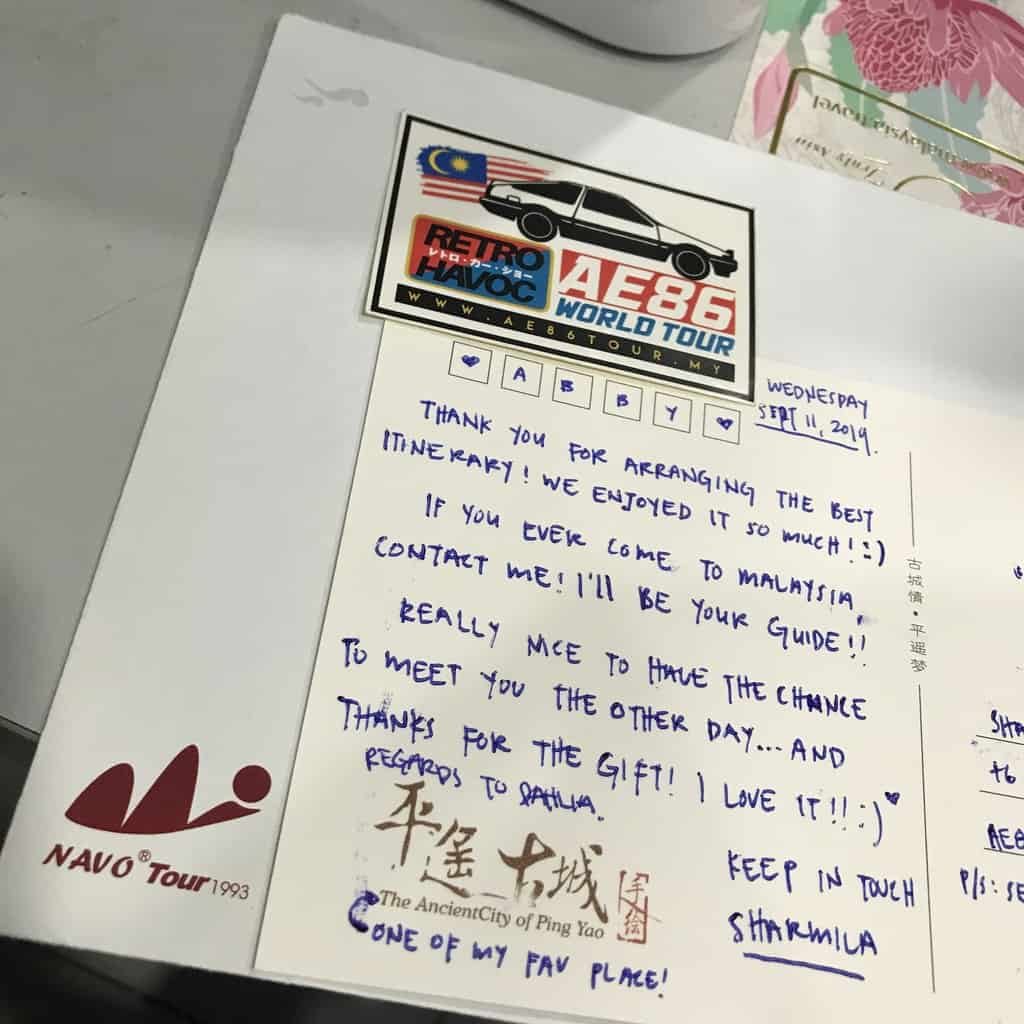 Truly Asia
malaysia travel
RETRO
レトロ・カー・ショー
HAVOC
AE86
WORLD TOUR
WWW.AE86TOUR.MY
♥ A B B Y ♥
WEDNESDAY
SEPT 11, 2019.
THANK YOU FOR ARRANGING THE BEST
ITINERARY! WE ENJOYED IT SO MUCH! :)
IF YOU EVER COME TO MALAYSIA,
CONTACT ME! I'LL BE YOUR GUIDE!!
REALLY NICE TO HAVE THE CHANCE
TO MEET YOU THE OTHER DAY... AND
THANKS FOR THE GIFT! I LOVE IT!! :) ♥
REGARDS TO DAHLIA.
平遥古城
手绘
The AncientCity of Ping Yao
ONE OF MY FAV PLACE!
KEEP IN TOUCH
SHARMILA
古城情・平遥梦
SHA
+6
AE8
P/S: SE
NAVO® Tour 1993